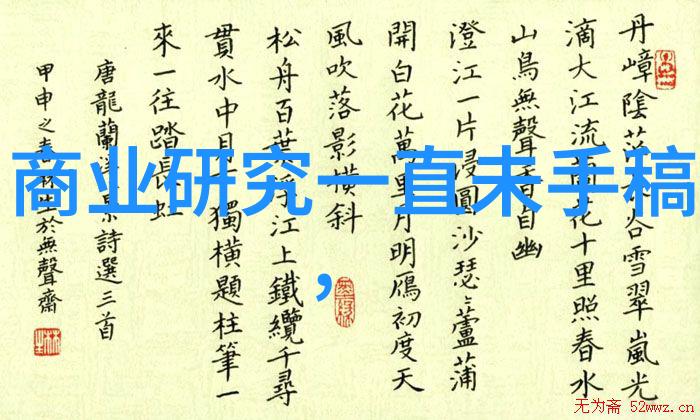 丹嶂陰谷雪翠嵐光
滴大江流花十里照春水
山鳥無聲香自幽
澄江一片浸圓沙瑟〻蘆蒲
開白花萬里月明鴈初度天
風吹落影橫斜
松舟百葉浮江上鐵纜千尋
貫水中月獨橫題柱筆一
來一往踏長虹
唐龍蘭景詩選三首
甲申之春林於無聲齋
商业研究一直未手稿
，
无为斋 52wwz.cn